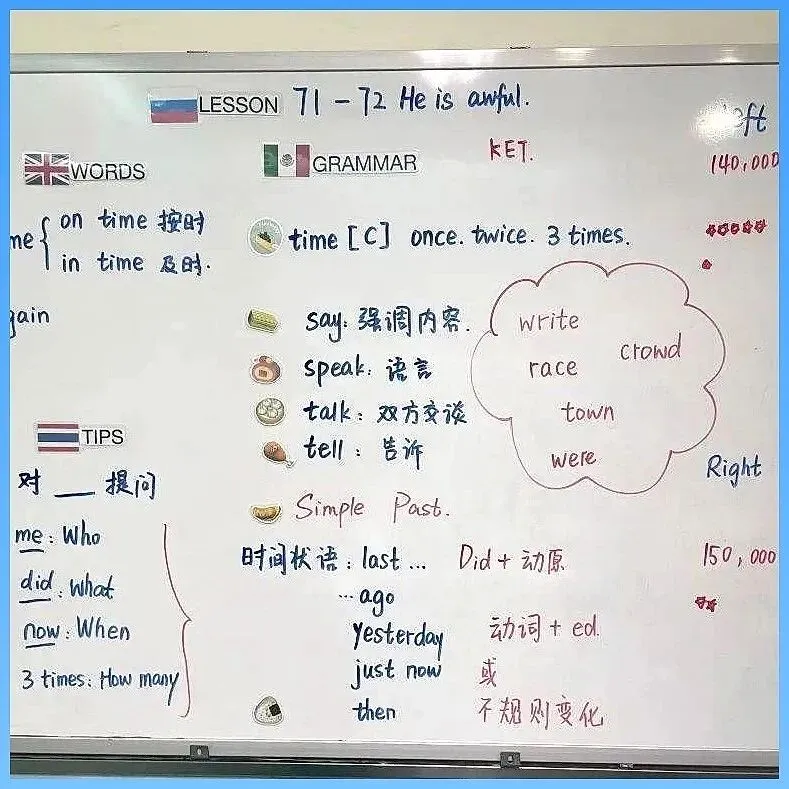 LESSON 71-72 He is awful.
WORDS
on time 按时
in time 及时.
GRAMMAR
KET.
time [C] once. twice. 3 times.
say: 强调内容.
speak: 语言
talk: 双方交谈
tell: 告诉
write
race
crowd
town
were
TIPS
对 ___ 提问
me: Who
did: What
now: When
3 times: How many
Simple Past.
时间状语: last ...
... ago
yesterday
just now
then
Did + 动原
动词 + ed.
或
不规则变化
140,000
Right
150,000